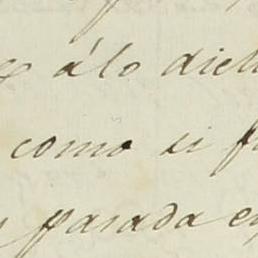 álo dich
como si f
pasada e